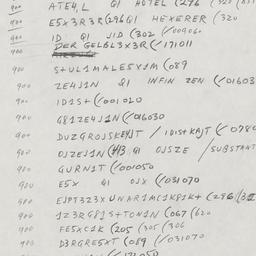 900 ATE4,L QI HOTEL (296
900 E5X3R3R (296 GI HEXERER (320
900 ID QI JID (302 (/009060
900 DER GELBL3X3R (/171011
900 S+UL1MALE5X1M (089
900 ZE4J1N QI INFIN ZEN (/01603
900 ID1S+ (/001020
900 G81ZE4J1N (/016030
900 DUZGROJSKEYJT / IDISTKAJT (/0780
900 OJZEJ1N QI OJSZE / SUBSTANT
900 GURN1T (/001050
900 E5X QI OJX (/031070
900 EJPT3Z3XUNAR1MC1K81K+ (296
900 1Z3RG81S+TON1N (067 (620
900 FE5XC1K (205 (305 (306
900 D3RGRE5XT (089 (/031070
(/171050